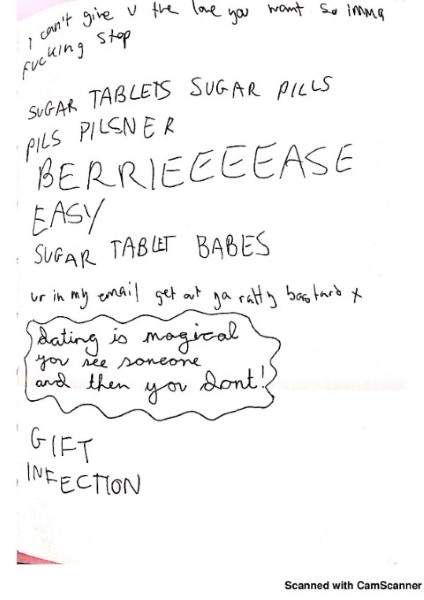 I can't give u the love you want so imma
fucking stop
SUGAR TABLETS SUGAR PILLS
PILS PILSNER
BERRIEEEEASE
EASY
SUGAR TABLET BABES
ur in my email get out ya ratty bastard x
dating is magical
you see someone
and then you dont!
GIFT
INFECTION
Scanned with CamScanner